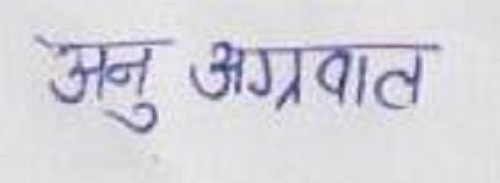 अनु अग्रवाल